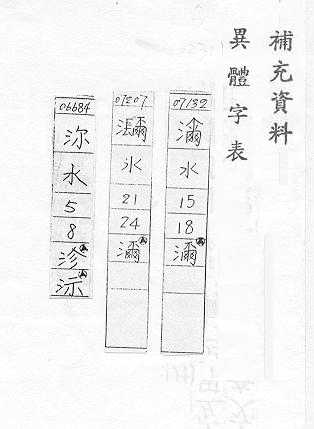 補充資料
異體字表
07132
水
15
18
濔
07207
水
21
24
濔
06684
沵
水
5
8
沴